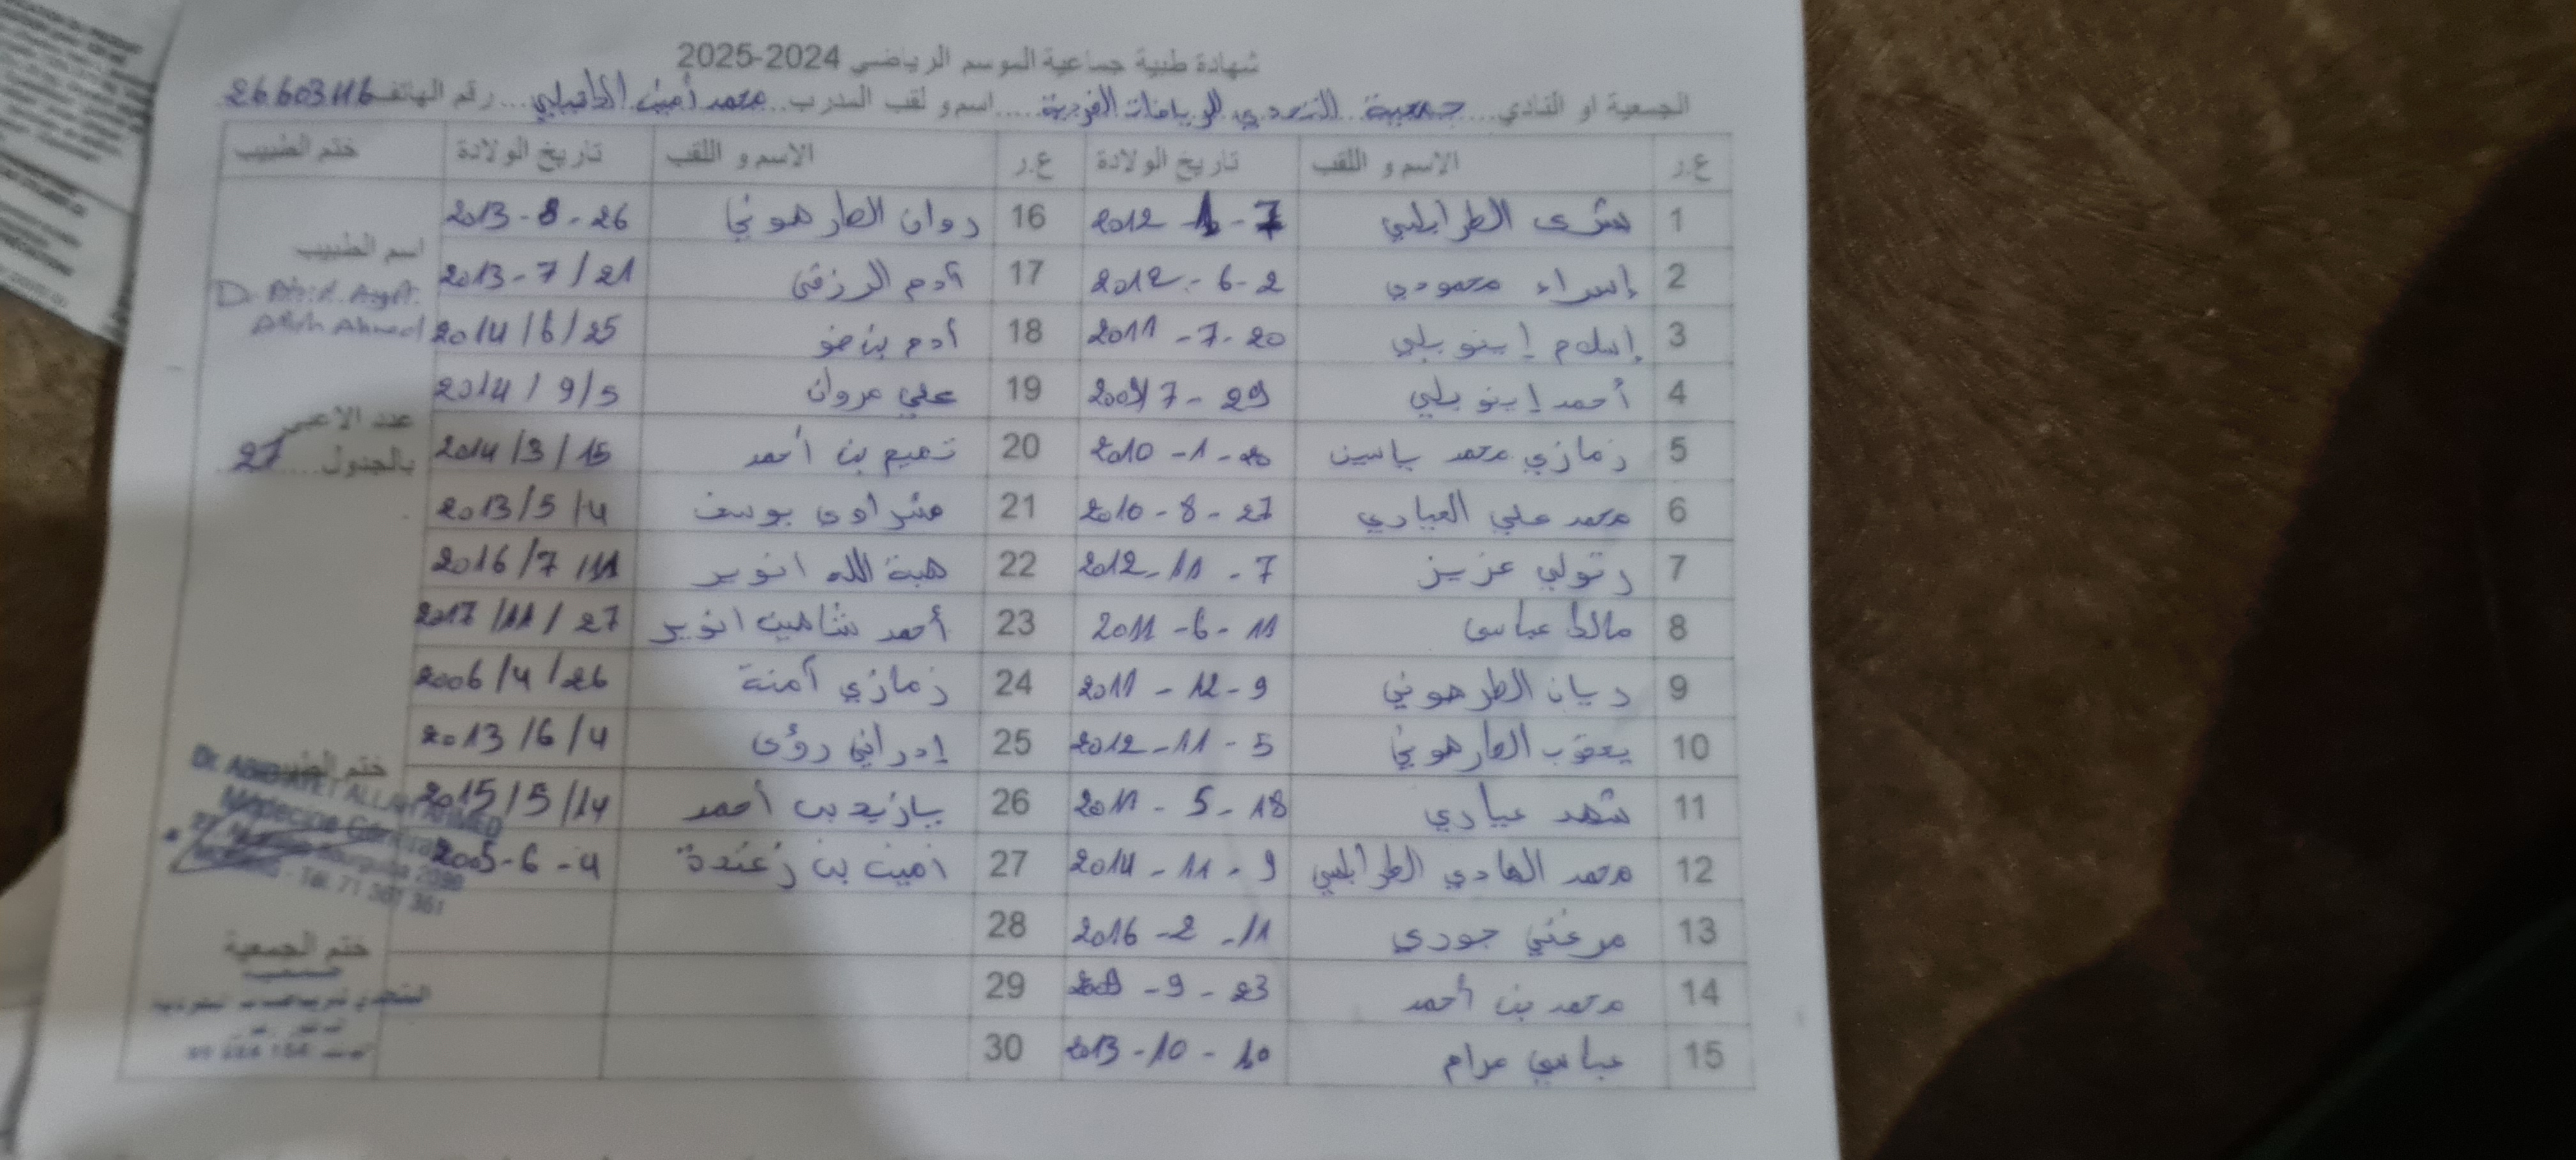 شهادة طبية جماعية الموسم الرياضي 2024-2025
الجمعية او النادي.... جمعية التحدي للرياضات الفردية ....اسم و لقب المدرب.. محمد أمين ....رقم الهاتف 26603116
ع.ر الاسم و اللقب تاريخ الولادة ع.ر الاسم و اللقب تاريخ الولادة ختم الطبيب
1 بشرى الطرابلسي 7 - 1 - 2012 16 روان الطرهوني 26 - 8 - 2013
اسم الطبيب
2 إسراء محمودي 2 - 6 - 2012 17 آدم الرزقي 21 / 7 - 2013
3 إسلام 20 - 7 - 2011 18 آدم بن ضو 25 / 6 / 2014
Ahmed
4 أحمد 29 - 7 19 علي مروان 5 / 9 / 2014
عدد
5 زمازي محمد ياسين 1 - 2010 20 تميم بن أحمد 15 / 3 / 2014
بالجدول.... 27
6 محمد علي العيادي 27 - 8 - 2010 21 يوسف 4 / 5 / 2013
7 عزيز 7 - 11 - 2012 22 هبة الله انوير 11 / 7 / 2016
8 مالك عباسي 11 - 6 - 2011 23 أحمد شاهين انوير 27 / 11 / 2017
9 ريان الطرهوني 9 - 12 - 2011 24 زمازي آمنة 26 / 4 / 2006
10 يعقوب الطرهوني 5 - 11 - 2012 25 رؤى 4 / 6 / 2013
ختم
11 شهد عيادي 18 - 5 - 2011 26 بن أحمد 14 / 5 / 2015
Dr. ALLAH AHMED
Médecine Générale
12 محمد الهادي الطرابلسي 9 - 11 - 2014 27 امين بن 4 - 6 - 2005
Tél. 71 301 361
13 مرغني جودي 11 - 2 - 2016 28
ختم الجمعية
14 محمد بن أحمد 23 - 9 29
15 عباسي مرام 10 - 10 - 2013 30